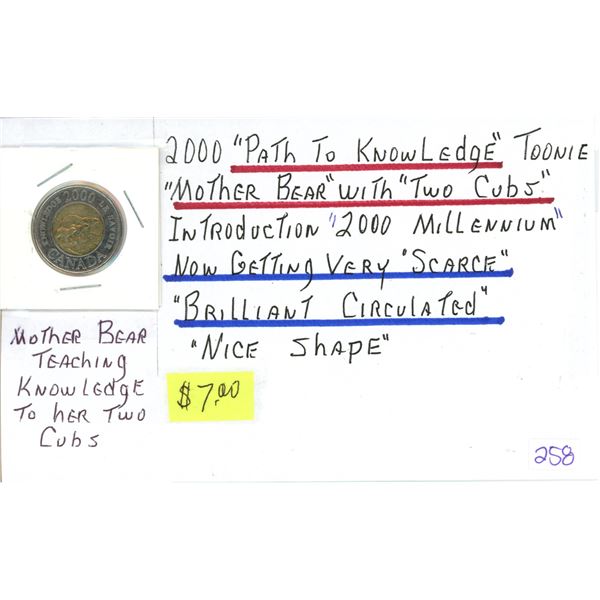 2000 "Path To Knowledge" Toonie
"Mother Bear" with "Two Cubs"
Introduction "2000 Millennium"
Now Getting Very "Scarce"
"Brilliant Circulated"
"Nice Shape"
$7.00
258
KNOWLEDGE 2000 LE SAVOIR
CANADA
Mother Bear
Teaching
Knowledge
To her Two
Cubs